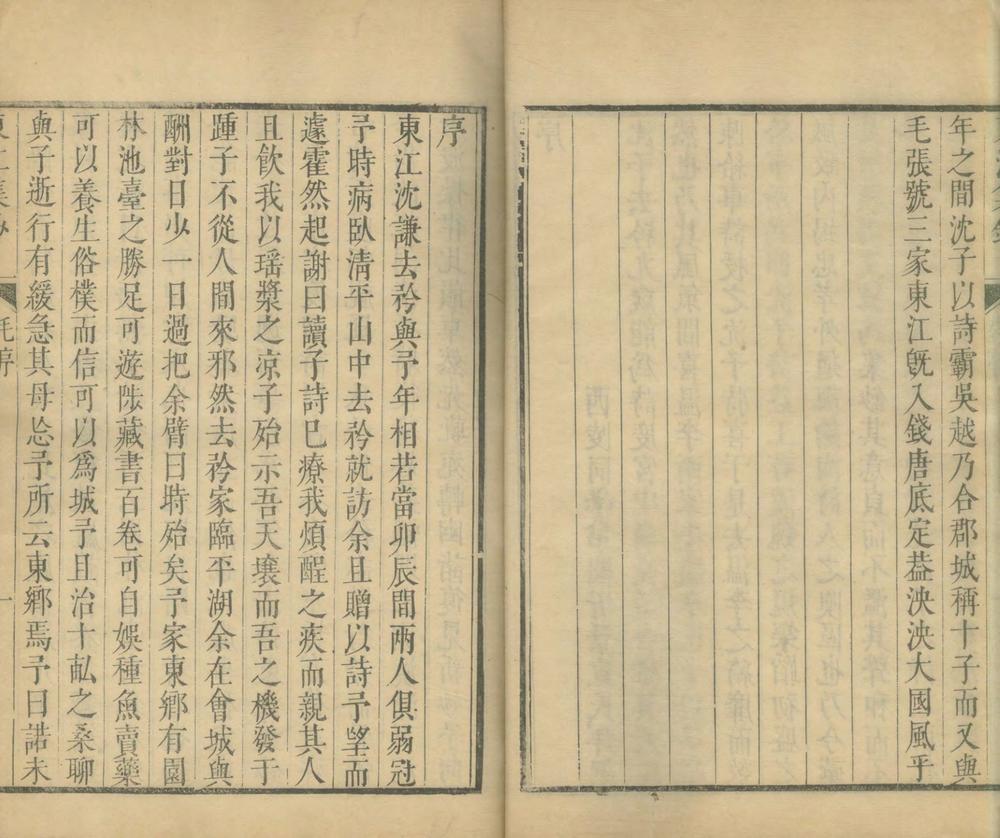 年之間沈子以詩霸吳越乃合郡城稱十子而又與
毛張號三家東江旣入錢唐底定葢泱泱大國風乎
序
東江沈謙去矜與予年相若當卯辰間兩人俱弱冠
予時病臥淸平山中去矜就訪余且贈以詩予望而
遽霍然起謝曰讀子詩已療我煩酲之疾而親其人
且飲我以瑶漿之凉子殆示吾天壤而吾之機發于
踵子不從人間來邪然去矜家臨平湖余在會城與
酬對日少一日過把余臂曰時殆矣予家東鄉有園
林池臺之勝足可遊陟藏書百卷可自娛種魚賣藥
可以養生俗樸而信可以爲城予且治十畝之桑聊
與子逝行有緩急其母忿予所云東鄉焉予曰諾未
毛序
一